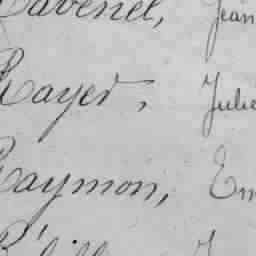 Ravenel, Jean
Rayer, Jule
Raymon, Em